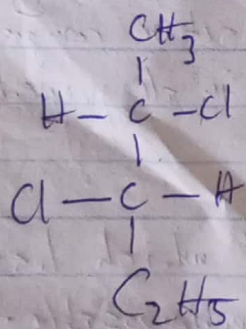 CH3
H - C - Cl
Cl - C - H
C2H5